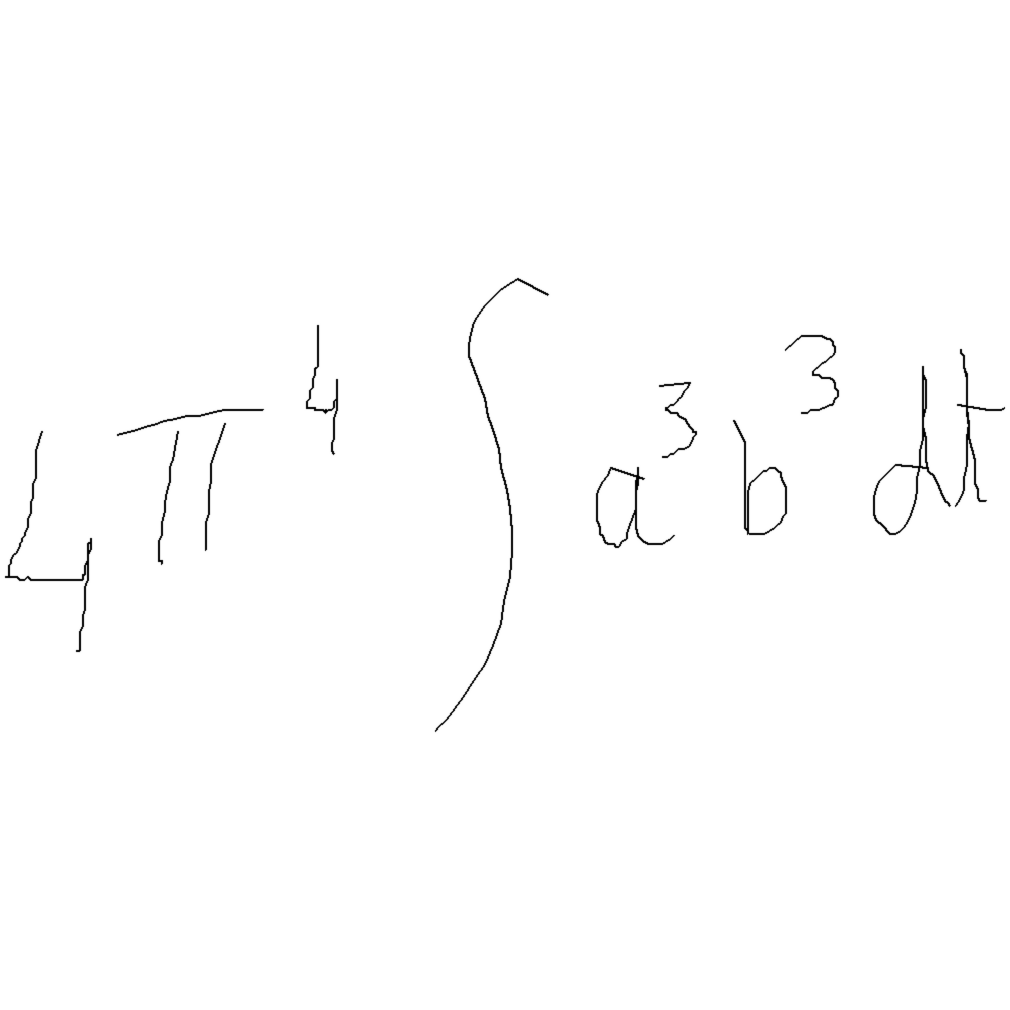 4π⁴ ∫ a³b³dt